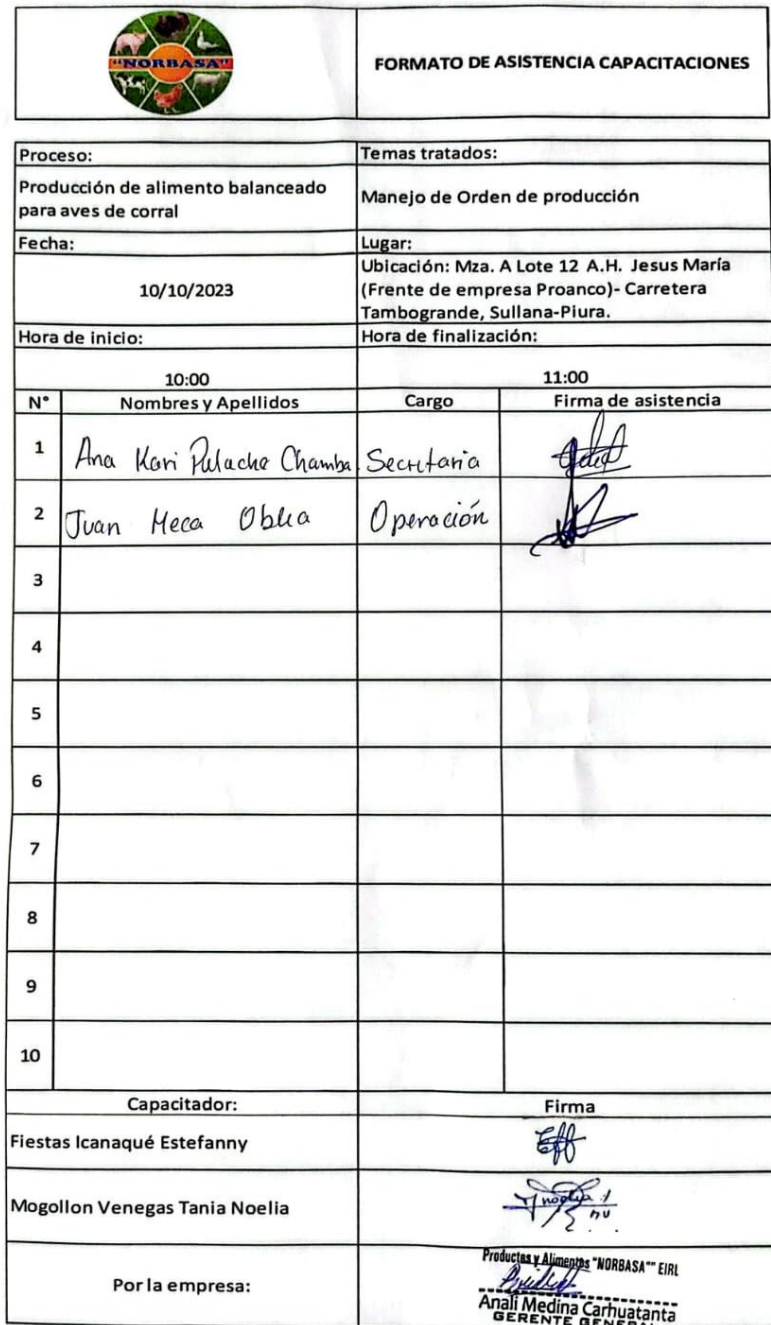 "NORBASA"
FORMATO DE ASISTENCIA CAPACITACIONES
Proceso:
Temas tratados:
Producción de alimento balanceado
para aves de corral
Manejo de Orden de producción
Fecha:
Lugar:
10/10/2023
Ubicación: Mza. A Lote 12 A.H. Jesus María
(Frente de empresa Proanco)- Carretera
Tambogrande, Sullana-Piura.
Hora de inicio:
Hora de finalización:
10:00
11:00
N° Nombres y Apellidos Cargo Firma de asistencia
1 Ana Kari Pulache Chamba Secretaria
2 Juan Meca Oblea Operación
3
4
5
6
7
8
9
10
Capacitador: Firma
Fiestas Icanaqué Estefanny
Mogollon Venegas Tania Noelia
Por la empresa:
Productos y Alimentos "NORBASA"" EIRL
Anali Medina Carhuatanta
GERENTE GENERAL